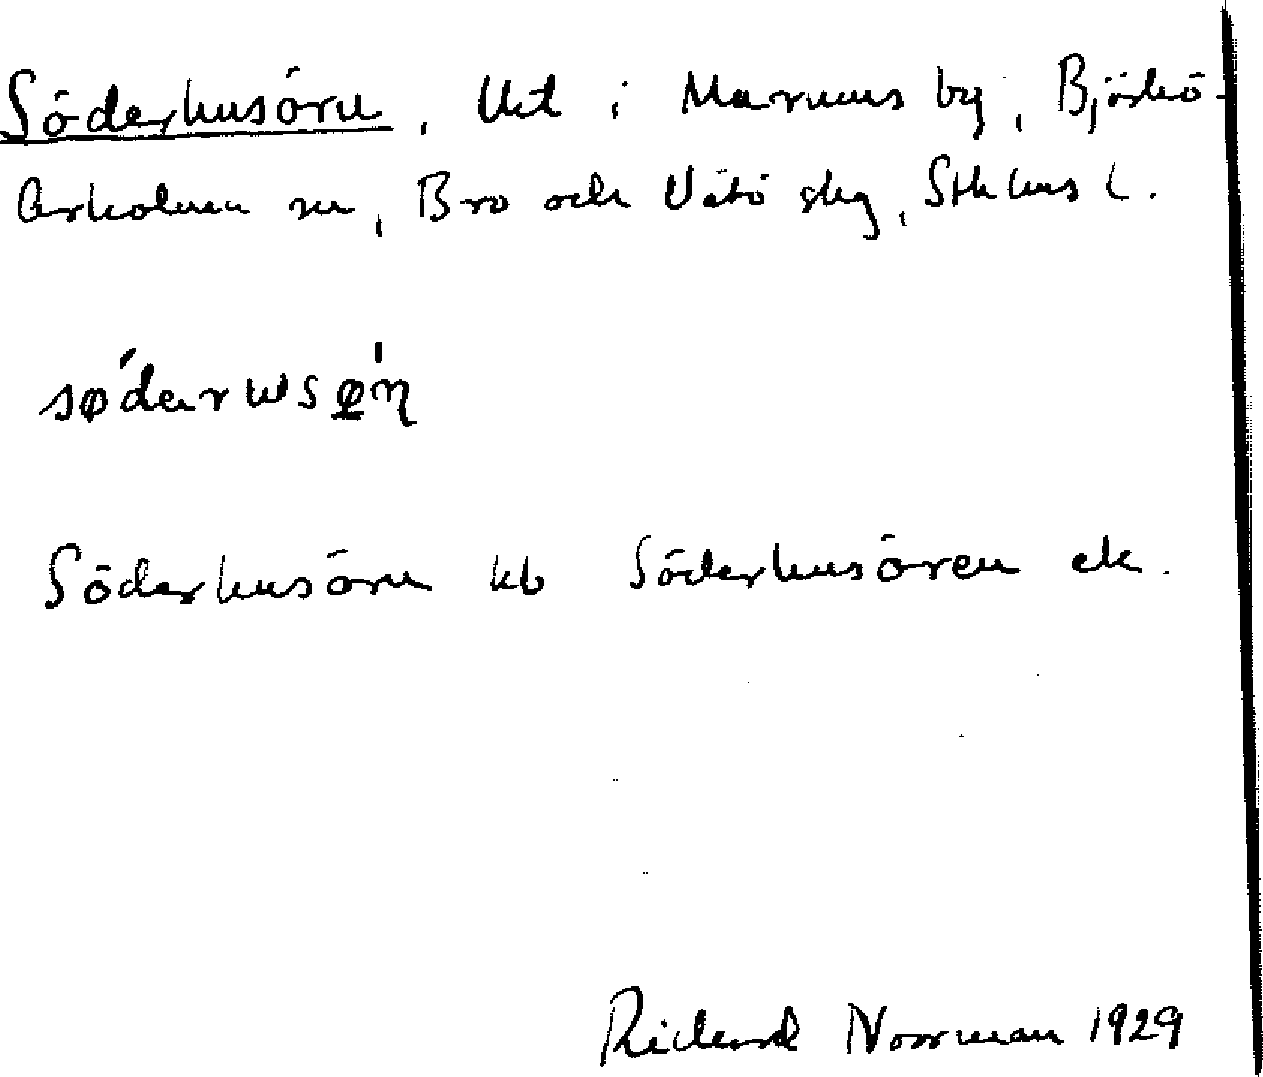 Söderhusörn, Udd i Marums by, Björkö-
Arholma sn, Bro och Vätö skg, Sthlms l.
Söderhusörn kb Söderhusören ek.
Richard Norrman 1929